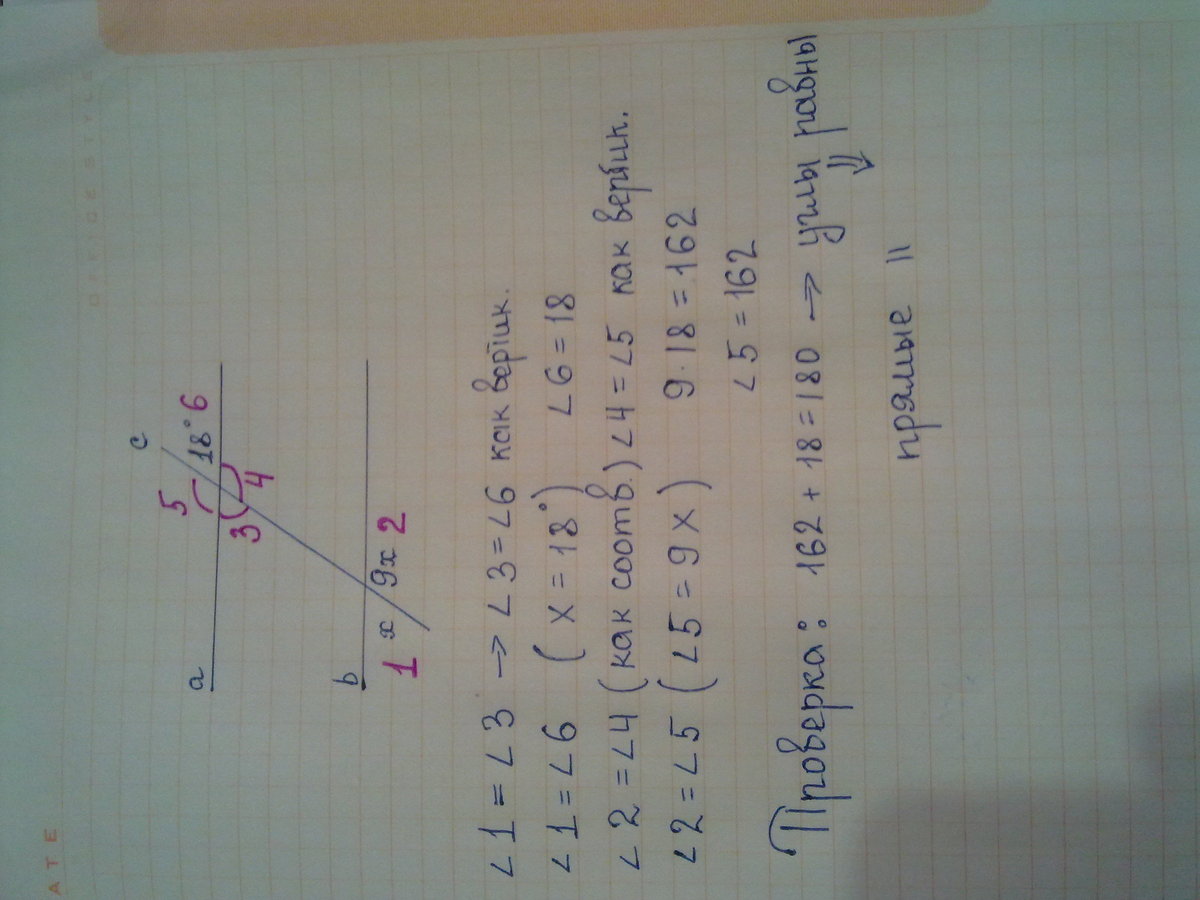 ATE
OFFICE STYLE
c
5
18° 6
a
3 4
b
x 9x 2
1
∠1 = ∠3 → ∠3 = ∠6 как вертик.
∠1 = ∠6 (x = 18°) ∠6 = 18
∠2 = ∠4 (как соотв.) ∠4 = ∠5 как вертик.
∠2 = ∠5 (∠5 = 9x) 9·18 = 162
∠5 = 162
Проверка: 162 + 18 = 180 → углы равны
⇓
прямые ||